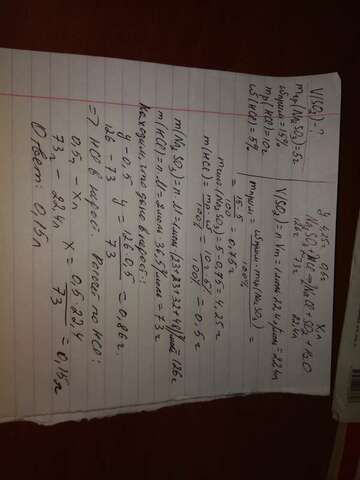 V(SO₂) - ?
mтр(Na₂SO₃) = 5г
ωприм = 15%
mр(HCl) = 10г
ω(HCl) = 5%
y 4,25г 0,5г xл
Na₂SO₃ + 2HCl → 2NaCl + SO₂ + H₂O
126г 73г 22,4л
V(SO₂) = n·Vm = 1моль·22,4л/моль = 22,4л
mприм = ωприм·mтр(Na₂SO₃) / 100% =
= 15·5 / 100 = 0,75г
mчист.(Na₂SO₃) = 5 - 0,75 = 4,25г
m(HCl) = mр·ω / 100% = 10г·5% / 100% = 0,5г
m(Na₂SO₃) = n·M = 1моль·(23+23+32+48)г/моль = 126г
m(HCl) = n·M = 2моль·36,5г/моль = 73г
Находим, что дано в избыт.:
y - 0,5
126 - 73 y = 126·0,5 / 73 = 0,86г
=> HCl в недост. Расчёт по HCl:
0,5г - xл
73г - 22,4л x = 0,5·22,4 / 73 = 0,15л
Ответ: 0,15л